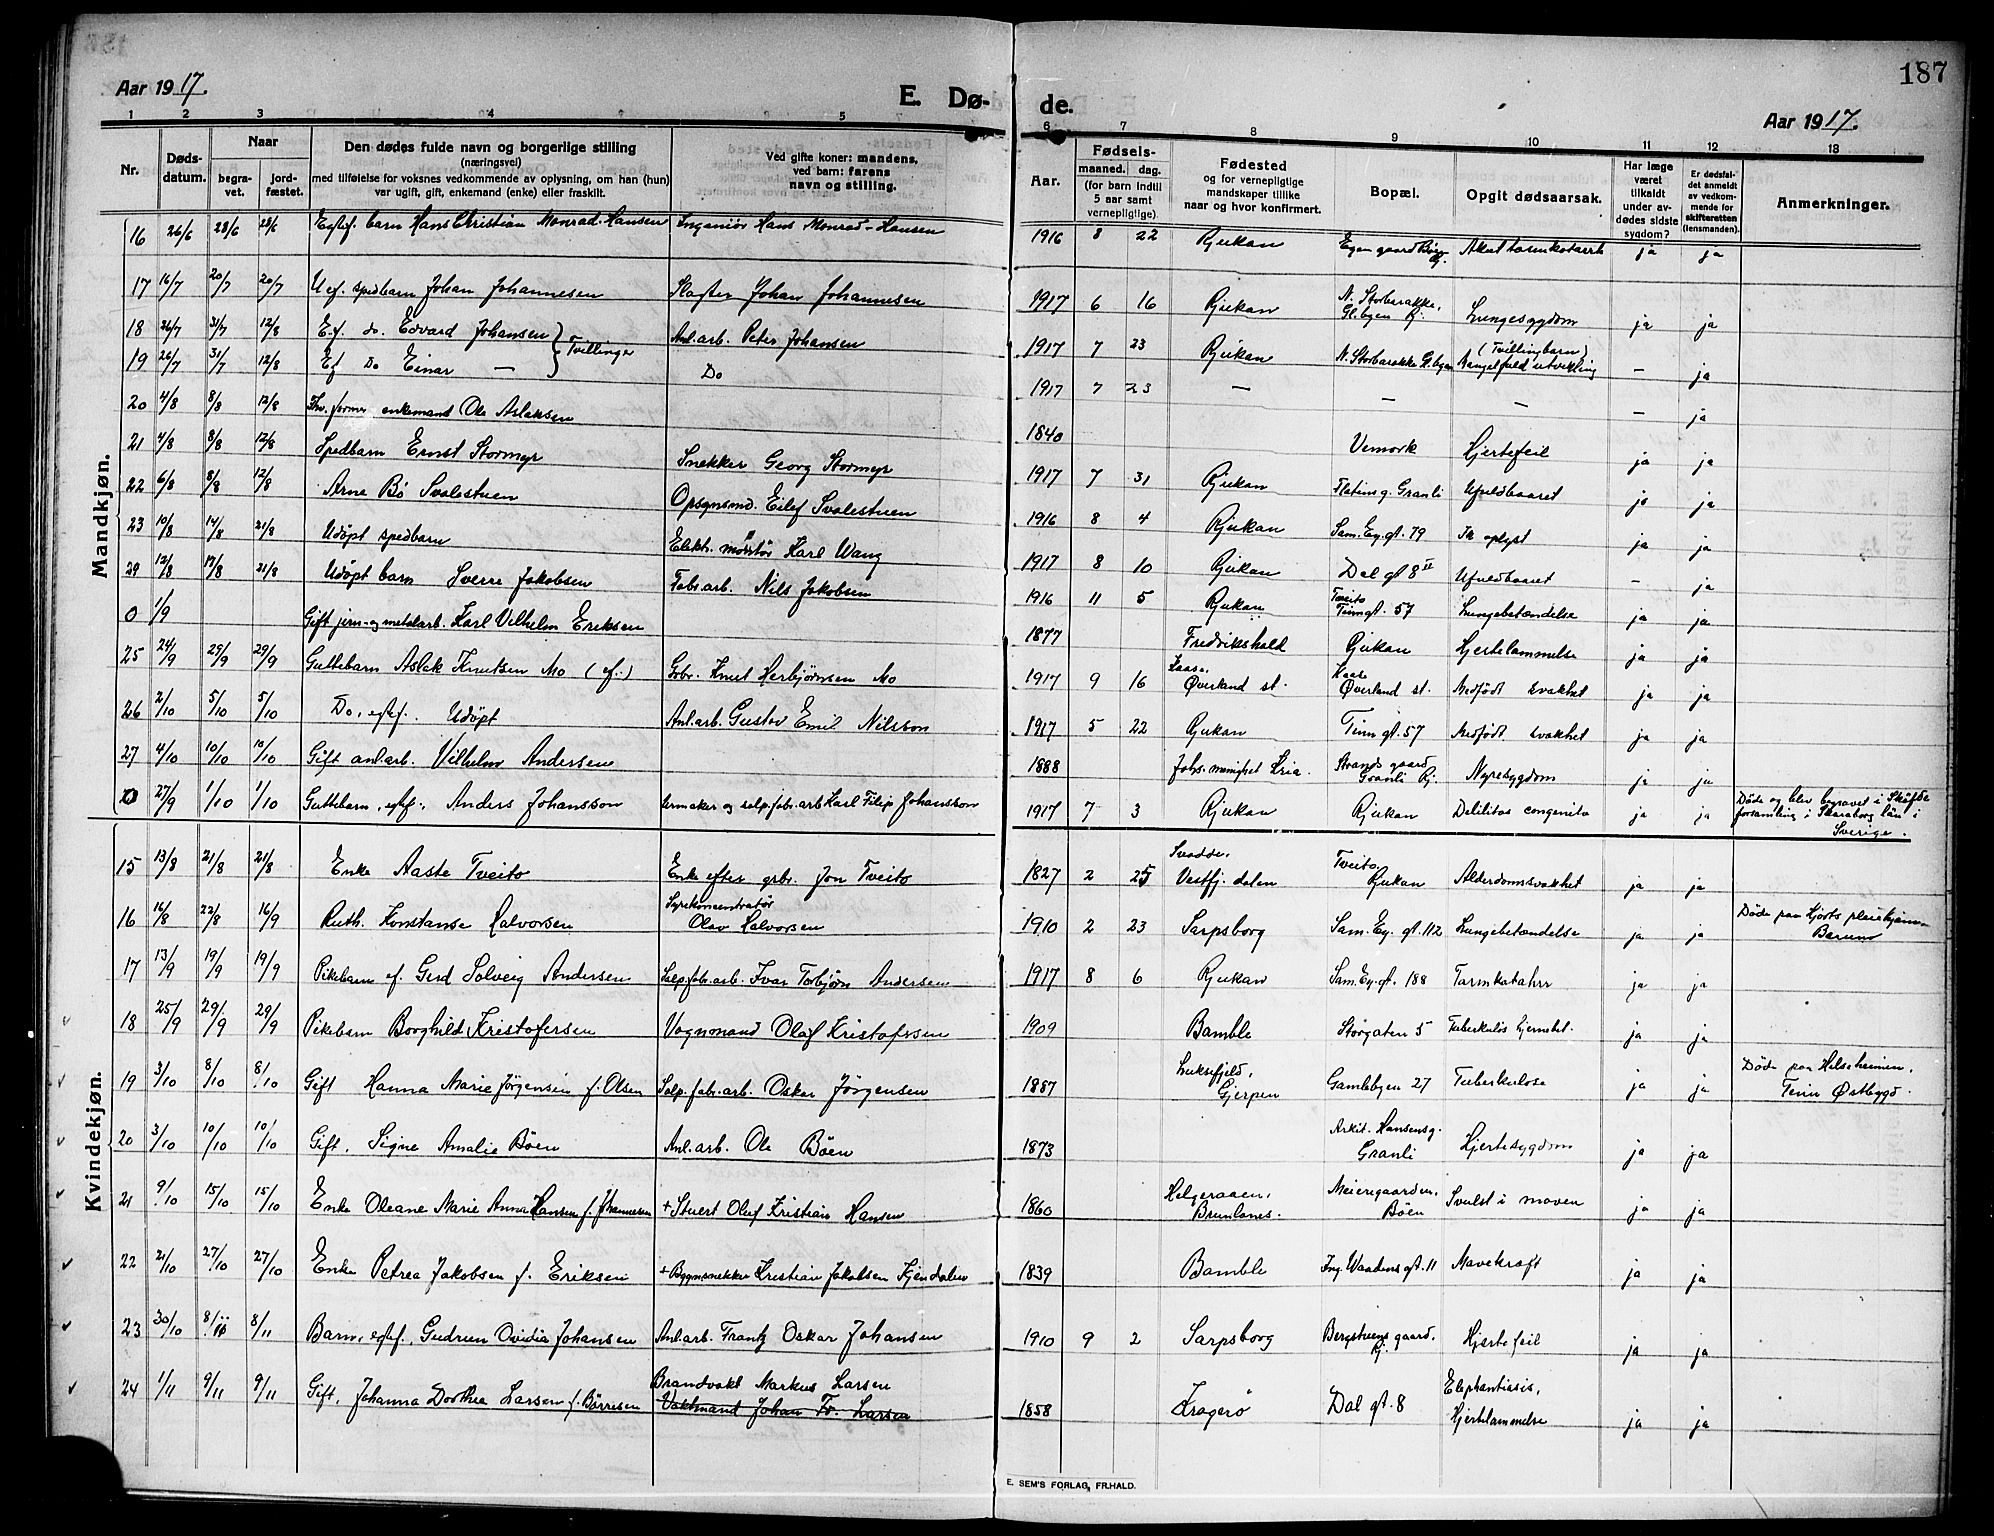 187
Aar 1917.
E. Dø-
de.
Aar 1917.
1 2 3 4 5 6 7 8 9 10 11 12 13
Nr.
Døds-
datum.
Naar
begra-
vet.
jord-
fæstet.
Den dødes fulde navn og borgerlige stilling
(næringsvei)
med tilføielse for voksnes vedkommende av oplysning, om han (hun)
var ugift, gift, enkemand (enke) eller fraskilt.
Ved gifte koner: mandens,
ved barn: farens
navn og stilling.
Aar.
Fødsels-
maaned. dag.
(for barn indtil
5 aar samt
vernepligtige).
Fødested
og for vernepligtige
mandskaper tillike
naar og hvor konfirmert.
Bopæl.
Opgit dødsaarsak.
Har læge
været
tilkaldt
under av-
dødes sidste
sygdom?
Er dødsfal-
det anmeldt
av vedkom-
mende for
skifteretten
(lensmanden).
Anmerkninger.
Mandkjøn.
16 26/6 28/6 28/6 Egtef. barn Hans Christian Monrad-Hansen Ingeniør Hans Monrad-Hansen 1916 8 22 Rjukan Egen gaard Rj. Akut tarmkatarrh ja ja
17 16/7 20/7 20/7 Uef. spedbarn Johan Johannesen Slagter Johan Johannesen 1917 6 16 Rjukan N. Storbarakke, Gl.byen Rj. Lungesygdom ja ja
18 26/7 31/7 12/8 E.f. do. Edvard Johansen } Tvillinger Anl.arb. Peter Johansen 1917 7 23 Rjukan N. Storbarakke Gl.byen (Tvillingbarn) Mangelfuld utvikling — ja
19 26/7 31/7 12/8 Ef Do Einar — Do 1917 7 23 — — — — ja
20 4/8 8/8 12/8 Fhv. former enkemand Ole Aslaksen 1840 Vemork Hjertefeil ja ja
21 4/8 8/8 12/8 Spedbarn Ernst Stormyr Snekker Georg Stormyr 1917 7 31 Rjukan Flating. Granli Ufuldbaaret ja ja
22 6/8 8/8 12/8 Arne Bø Svalestuen Opsynsmd. Eilef Svalestuen 1916 8 4 Rjukan Sam. Eg. gt. 79 Ik oplyst ja ja
23 10/8 14/8 21/8 Udøpt spedbarn Elektr. montør Karl Wang 1917 8 10 Rjukan Dal gt 8 II Ufuldbaaret — ja
29 12/8 17/8 21/8 Udøpt barn Sverre Jakobsen Fabr.arb. Nils Jakobsen 1916 11 5 Rjukan Tveito Tinngt. 57 Lungebetændelse ja ja
0 1/9 Gift jern- og metalarb. Karl Vilhelm Eriksen 1877 Fredrikshald Rjukan Hjertelammelse ja ja
25 24/9 29/9 29/9 Guttebarn Aslak Knutsen Mo (ef.) Gbr. Knut Herbjørnsen Mo 1917 9 16 Kaase, Øverland st. Kaase Øverland st. Medfødt svakhet ja ja
26 2/10 5/10 5/10 Do, egtef. Udøpt Anl.arb. Gustav Emil Nilsson 1917 5 22 Rjukan Tinn gt. 57 Medfødt svakhet ja ja
27 4/10 10/10 10/10 Gift anl.arb. Vilhelm Andersen 1888 Johs. menighet Kria. Strands gaard Granli Rj. Nyresygdom ja ja
0 27/9 1/10 1/10 Guttebarn, egtef., Anders Johansson og salp.fabr.arb Karl Filip Johansson 1917 7 3 Rjukan Rjukan Debilitas congenita ja ja Døde og blev begravet i Sköfde
forsamling i Skaraborg län i
Sverige.
Kvindekjøn.
15 13/8 21/8 21/8 Enke Aaste Tveito Enke efter gbr. Jon Tveito 1827 2 25 Svadde, Vestfj. dalen Tveito Rjukan Alderdomssvakhet ja ja
16 16/8 22/8 16/9 Ruth Konstanse Halvorsen Syrekoncentratør Olav Halvorsen 1910 2 23 Sarpsborg Sam. Eg. gt. 112 Lungebetændelse ja ja Døde paa Hjorts pleiehjem
Bærum
17 13/9 19/9 19/9 Pikebarn ef. Gerd Solveig Andersen Salp.fabr.arb. Ivar Torbjørn Andersen 1917 8 6 Rjukan Sam.Eg.gt. 188 Tarmkatahrr ja ja
18 25/9 29/9 29/9 Pikebarn Borghild Kristofersen Vognmand Olaf Kristofssen 1909 Bamble Storgaten 5 Tuberkuløs hjernebet. ja ja
19 3/10 8/10 8/10 Gift Hanna Marie Jørgensen f. Olsen Salp.fabr.arb. Oskar Jørgensen 1887 Luksefjeld, Gjerpen Gamlebyen 27 Tuberkulose ja ja Døde paa Helseheimen,
Tinn Østbygd.
20 3/10 10/10 10/10 Gift, Signe Amalie Bøen Anl.arb. Ole Bøen 1873 Arkit. Hansensg. Granli Hjertesygdom ja ja
21 9/10 15/10 15/10 Enke Oleane Marie Anna Hansen f. Johannesen + Stuert Oluf Kristian Hansen 1860 Helgeraaen, Brunlanes. Meierigaarden, Bøen Svulst i maven ja ja
22 21/10 27/10 27/10 Enke Petrea Jakobsen f. Eriksen + Bygnsnekker Kristian Jakobsen Kjendalen 1839 Bamble Ing. Waadens gt. 11 Mavekræft ja ja
23 30/10 8/11 8/11 Barn, egtef. Gudrun Ovidia Johansen Anl.arb. Frantz Oskar Johansen 1910 9 2 Sarpsborg Bergstuens gaard, Rj. Hjertefeil ja ja
24 1/11 9/11 9/11 Gift, Johanna Dorthea Larsen f. Børresen Brandvakt Markus Larsen Vaktmand Johan Fr. Larsen 1858 Kragerø Dal gt. 8 Elephantiasis, Hjertelammelse ja ja
E. SEM'S FORLAG, FR.HALD.